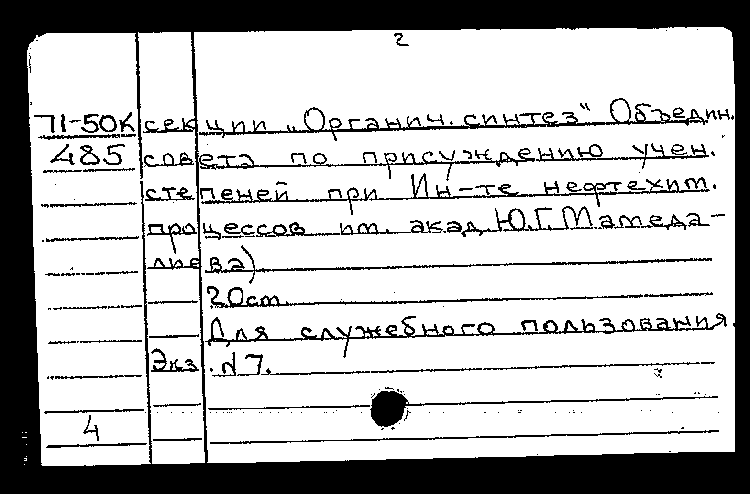 2
71-50К секции „Органич. синтез" Объедин.
485 совета по присуждению учен.
степеней при Ин-те нефтехим.
процессов им. акад. Ю.Г. Мамеда-
лиева)
20 ст.
Для служебного пользования.
Экз. №7.
4